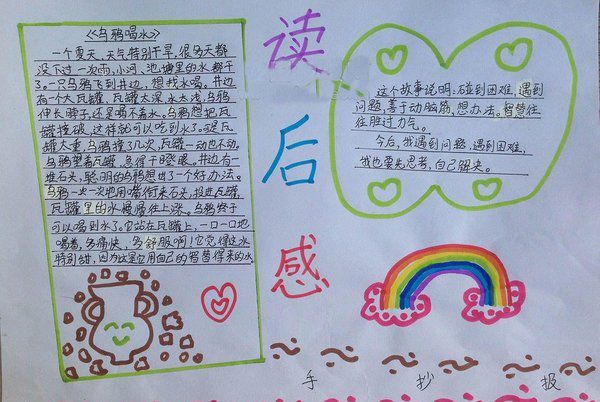 《乌鸦喝水》
一个夏天，天气特别干旱，很多天都
没下过一次雨，小河、池塘里的水都干
了。一只乌鸦飞到井边，想找水喝。井边
有一个大瓦罐，瓦罐太深，水太浅，乌鸦
伸长脖子，还是喝不着水。乌鸦想把瓦
罐撞破，这样就可以吃到水了。可是瓦
罐太重，乌鸦撞了几次，瓦罐一动也不动。
乌鸦望着瓦罐，急得干瞪眼。井边有一
堆石头，聪明的乌鸦想出了一个好办法。
乌鸦一次一次地用嘴衔来石头，投进瓦罐，
瓦罐里的水慢慢往上涨。乌鸦终于
可以喝到水了。它站在瓦罐上，一口一口地
喝着，多痛快、多舒服啊！它觉得这水
特别甜，因为这是它用自己的智慧得来的水
读后感
这个故事说明：碰到困难，遇到
问题，善于动脑筋，想办法。智慧往
往胜过力气。
今后，我遇到问题，遇到困难，
我也要先思考，自己解决。
手抄报